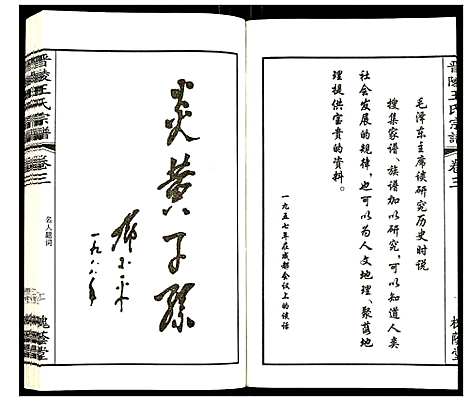 晋陵王氏宗谱
卷三
槐荫堂
毛泽东主席谈研究历史时说
搜集家谱、族谱加以研究，可以知道人类
社会发展的规律，也可以为人文地理、聚落地
理提供宝贵的资料。
一九五七年在成都会议上的谈话
炎黄子孙
邓小平
一九八八年
名人题词
晋陵王氏宗谱
卷三
槐荫堂